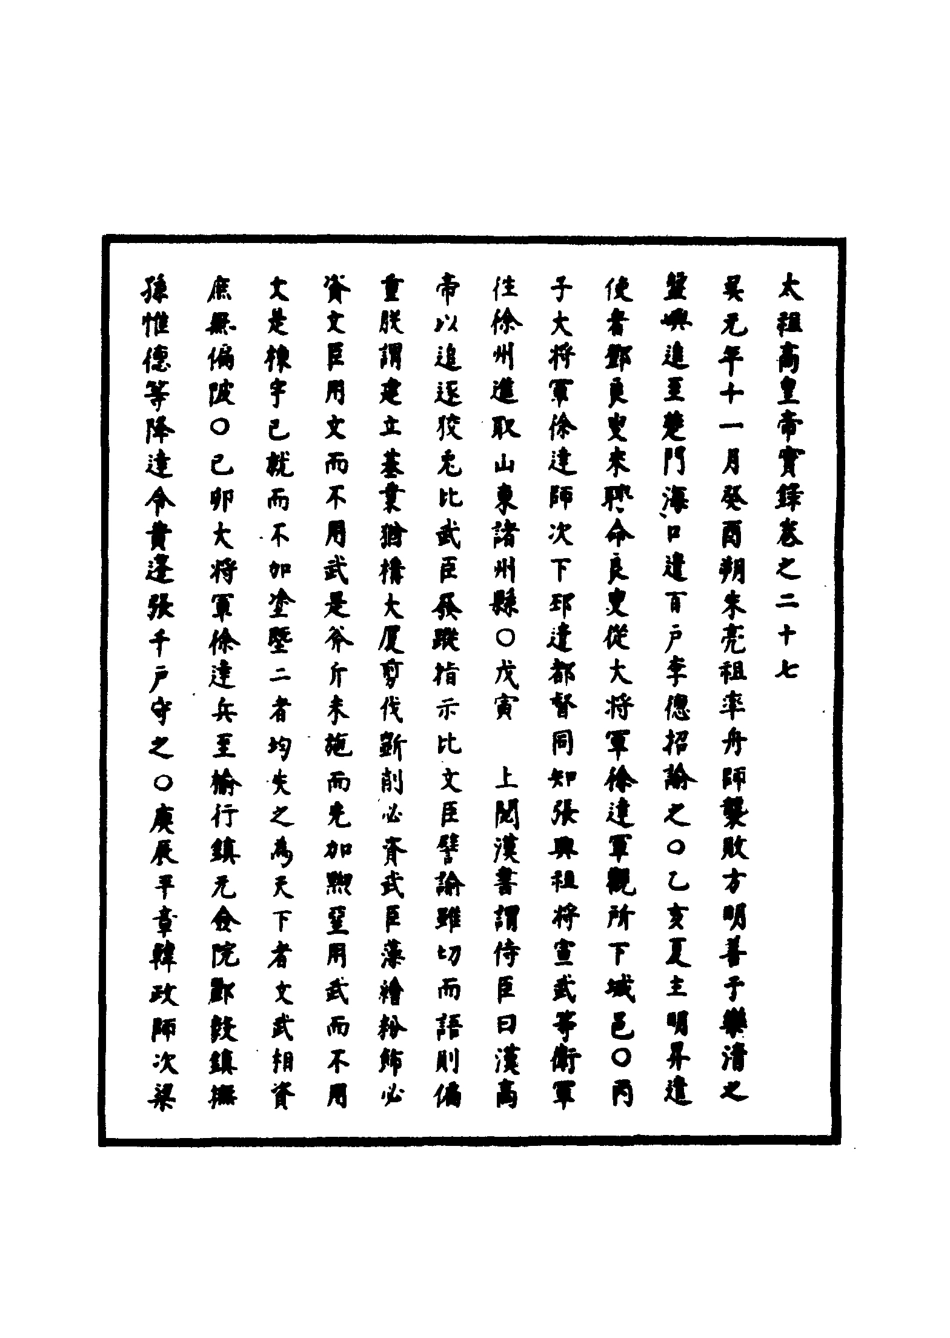 太祖高皇帝實錄卷之二十七
吳元年十一月癸酉朔朱亮祖率舟師襲敗方明善于樂清之
盤嶼追至楚門海口遣百戶李德招諭之〇乙亥夏主明昇遣
使者鄧良叟來聘命良叟從大將軍徐達軍觀所下城邑〇丙
子大將軍徐達師次下邳達都督同知張興祖將宣武等衛軍
往徐州進取山東諸州縣〇戊寅　上閱漢書謂侍臣曰漢高
帝以追逐狡兎比武臣發蹤指示比文臣譬諭雖切而語則偏
重朕謂建立基業猶構大厦剪伐斲削必資武臣藻繪粉飾必
資文臣用文而不用武是斧斤未施而先加黝堊用武而不用
文是棟宇已就而不加塗塈二者均失之為天下者文武相資
庶無偏陂〇己卯大將軍徐達兵至榆行鎮元僉院鄭毅鎮撫
孫惟德等降達令黃逢張千戶守之〇庚辰平章韓政師次梁